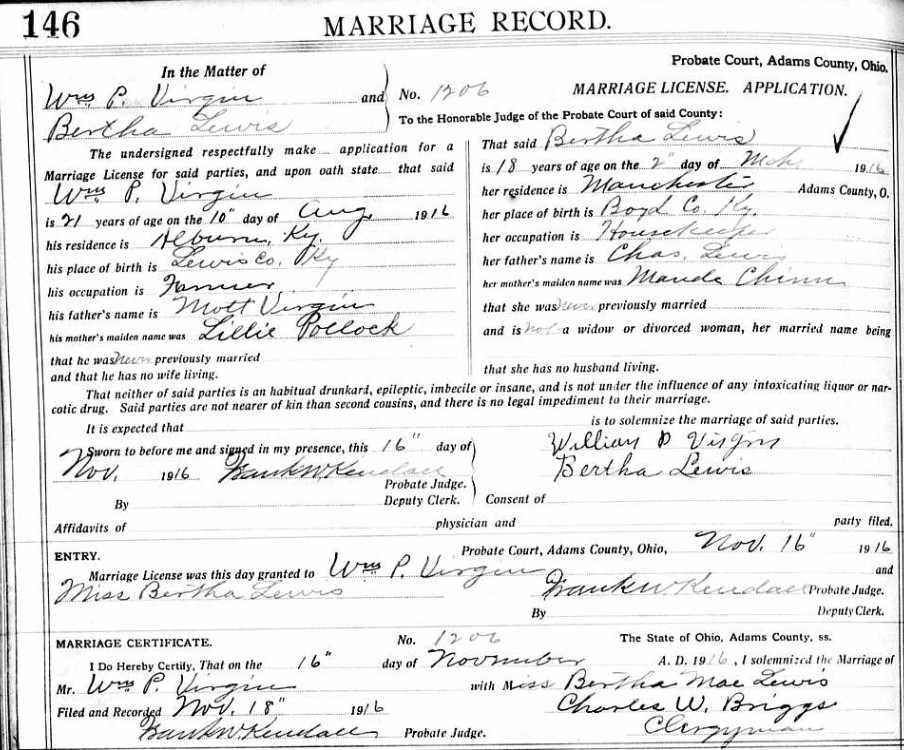 146
MARRIAGE RECORD.
Probate Court, Adams County, Ohio.
In the Matter of
Wms P. Virgin and
Bertha Lewis
No. 1206
MARRIAGE LICENSE. APPLICATION.
To the Honorable Judge of the Probate Court of said County:
The undersigned respectfully make application for a
Marriage License for said parties, and upon oath state that said
Wms P. Virgin
is 21 years of age on the 10" day of Aug 1916
his residence is Alburn, Ky.
his place of birth is Lewis Co. Ky
his occupation is Farmer.
his father's name is Mott Virgin
his mother's maiden name was Lillie Pollock
that he was never previously married
and that he has no wife living.
That said Bertha Lewis
is 18 years of age on the 2" day of Mch 1916
her residence is Manchester Adams County, O.
her place of birth is Boyd Co. Ky.
her occupation is Housekeeper
her father's name is Chas. Lewis
her mother's maiden name was Maude Chinn
that she was never previously married
and is not a widow or divorced woman, her married name being
that she has no husband living.
That neither of said parties is an habitual drunkard, epileptic, imbecile or insane, and is not under the influence of any intoxicating liquor or nar-
cotic drug. Said parties are not nearer of kin than second cousins, and there is no legal impediment to their marriage.
It is expected that is to solemnize the marriage of said parties.
Sworn to before me and signed in my presence, this 16" day of
Nov. 1916 Frank W. Kendall
Probate Judge.
By Deputy Clerk.
William P Virgin
Bertha Lewis
Consent of
Affidavits of physician and party filed.
ENTRY.
Probate Court, Adams County, Ohio, Nov. 16" 1916
Marriage License was this day granted to Wms P. Virgin and
Miss Bertha Lewis Frank W Kendall Probate Judge.
By Deputy Clerk.
MARRIAGE CERTIFICATE. No. 1206 The State of Ohio, Adams County, ss.
I Do Hereby Certify, That on the 16" day of November A. D. 1916, I solemnized the Marriage of
Mr. Wms P. Virgin with Miss Bertha Mae Lewis
Filed and Recorded Nov. 18" 1916 Charles W. Briggs
Frank W Kendall Probate Judge. Clergyman